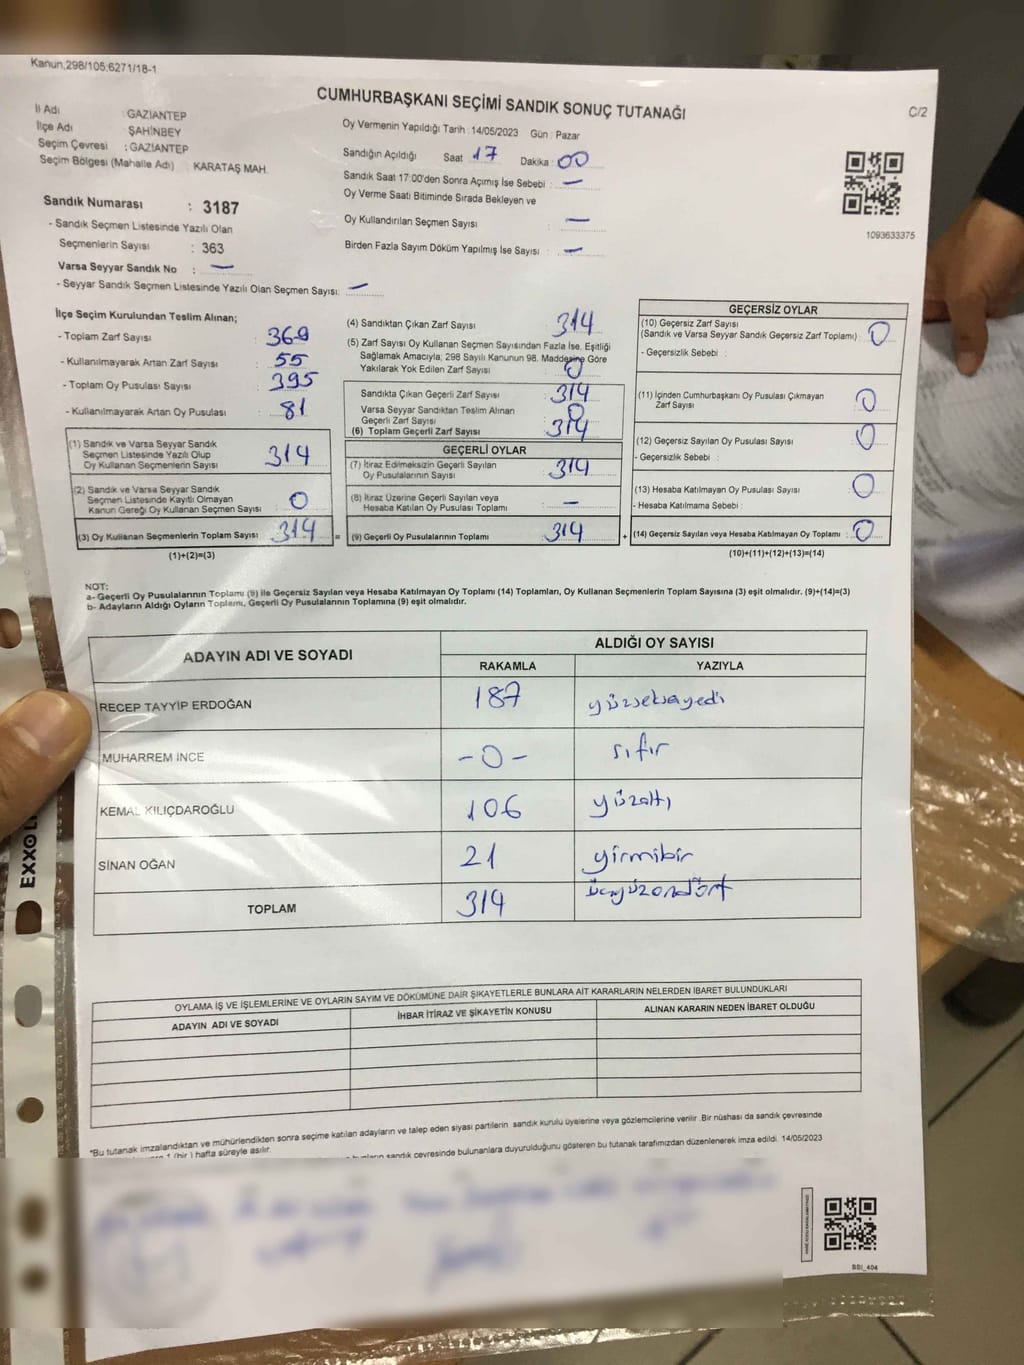 Kanun,298/105,6271/18-1
CUMHURBAŞKANI SEÇİMİ SANDIK SONUÇ TUTANAĞI
C/2
İl Adı : GAZİANTEP
İlçe Adı : ŞAHİNBEY
Seçim Çevresi : GAZİANTEP
Seçim Bölgesi (Mahalle Adı) : KARATAŞ MAH.
Sandık Numarası : 3187
- Sandık Seçmen Listesinde Yazılı Olan
Seçmenlerin Sayısı : 363
Varsa Seyyar Sandık No : —
- Seyyar Sandık Seçmen Listesinde Yazılı Olan Seçmen Sayısı: —
Oy Vermenin Yapıldığı Tarih : 14/05/2023 Gün : Pazar
Sandığın Açıldığı Saat 17 Dakika : 00
Sandık Saat 17:00'den Sonra Açımış İse Sebebi : —
Oy Verme Saati Bitiminde Sırada Bekleyen ve
Oy Kullandırılan Seçmen Sayısı : —
Birden Fazla Sayım Döküm Yapılmış İse Sayısı : —
1093633375
İlçe Seçim Kurulundan Teslim Alınan;
- Toplam Zarf Sayısı : 369
- Kullanılmayarak Artan Zarf Sayısı : 55
- Toplam Oy Pusulası Sayısı : 395
- Kullanılmayarak Artan Oy Pusulası : 81
(1) Sandık ve Varsa Seyyar Sandık
Seçmen Listesinde Yazılı Olup
Oy Kullanan Seçmenlerin Sayısı : 314
(2) Sandık ve Varsa Seyyar Sandık
Seçmen Listesinde Kayıtlı Olmayan
Kanun Gereği Oy Kullanan Seçmen Sayısı : 0
(3) Oy Kullanan Seçmenlerin Toplam Sayısı : 314 =
(1)+(2)=(3)
(4) Sandıktan Çıkan Zarf Sayısı : 314
(5) Zarf Sayısı Oy Kullanan Seçmen Sayısından Fazla İse, Eşitliği
Sağlamak Amacıyla; 298 Sayılı Kanunun 98. Maddesine Göre
Yakılarak Yok Edilen Zarf Sayısı : 0
Sandıkta Çıkan Geçerli Zarf Sayısı : 314
Varsa Seyyar Sandıktan Teslim Alınan
Geçerli Zarf Sayısı : 0
(6) Toplam Geçerli Zarf Sayısı : 314
GEÇERLİ OYLAR
(7) İtiraz Edilmeksizin Geçerli Sayılan
Oy Pusulalarının Sayısı : 314
(8) İtiraz Üzerine Geçerli Sayılan veya
Hesaba Katılan Oy Pusulası Toplamı : —
(9) Geçerli Oy Pusulalarının Toplamı : 314 +
GEÇERSİZ OYLAR
(10) Geçersiz Zarf Sayısı
(Sandık ve Varsa Seyyar Sandık Geçersiz Zarf Toplamı) : 0
- Geçersizlik Sebebi :
(11) İçinden Cumhurbaşkanı Oy Pusulası Çıkmayan
Zarf Sayısı : 0
(12) Geçersiz Sayılan Oy Pusulası Sayısı : 0
- Geçersizlik Sebebi :
(13) Hesaba Katılmayan Oy Pusulası Sayısı : 0
- Hesaba Katılmama Sebebi :
(14) Geçersiz Sayılan veya Hesaba Katılmayan Oy Toplamı : 0
(10)+(11)+(12)+(13)=(14)
NOT:
a- Geçerli Oy Pusulalarının Toplamı (9) ile Geçersiz Sayılan veya Hesaba Katılmayan Oy Toplamı (14) Toplamları, Oy Kullanan Seçmenlerin Toplam Sayısına (3) eşit olmalıdır. (9)+(14)=(3)
b- Adayların Aldığı Oyların Toplamı, Geçerli Oy Pusulalarının Toplamına (9) eşit olmalıdır.
ADAYIN ADI VE SOYADI ALDIĞI OY SAYISI
RAKAMLA YAZIYLA
RECEP TAYYİP ERDOĞAN 187 yüzseksenyedi
MUHARREM İNCE -0- sıfır
KEMAL KILIÇDAROĞLU 106 yüzaltı
SİNAN OĞAN 21 yirmibir
TOPLAM 314 üçyüzondört
OYLAMA İŞ VE İŞLEMLERİNE VE OYLARIN SAYIM VE DÖKÜMÜNE DAİR ŞİKAYETLERLE BUNLARA AİT KARARLARIN NELERDEN İBARET BULUNDUKLARI
ADAYIN ADI VE SOYADI İHBAR İTİRAZ VE ŞİKAYETİN KONUSU ALINAN KARARIN NEDEN İBARET OLDUĞU
*Bu tutanak imzalandıktan ve mühürlendikten sonra seçime katılan adayların ve talep eden siyasi partilerin sandık kurulu üyelerine veya gözlemcilerine verilir .Bir nüshası da sandık çevresinde
1 (bir ) hafta süreyle asılır.
sandık çevresinde bulunanlara duyurulduğunu gösteren bu tutanak tarafımızdan düzenlenerek imza edildi. 14/05/2023
EXXO
BBI_404